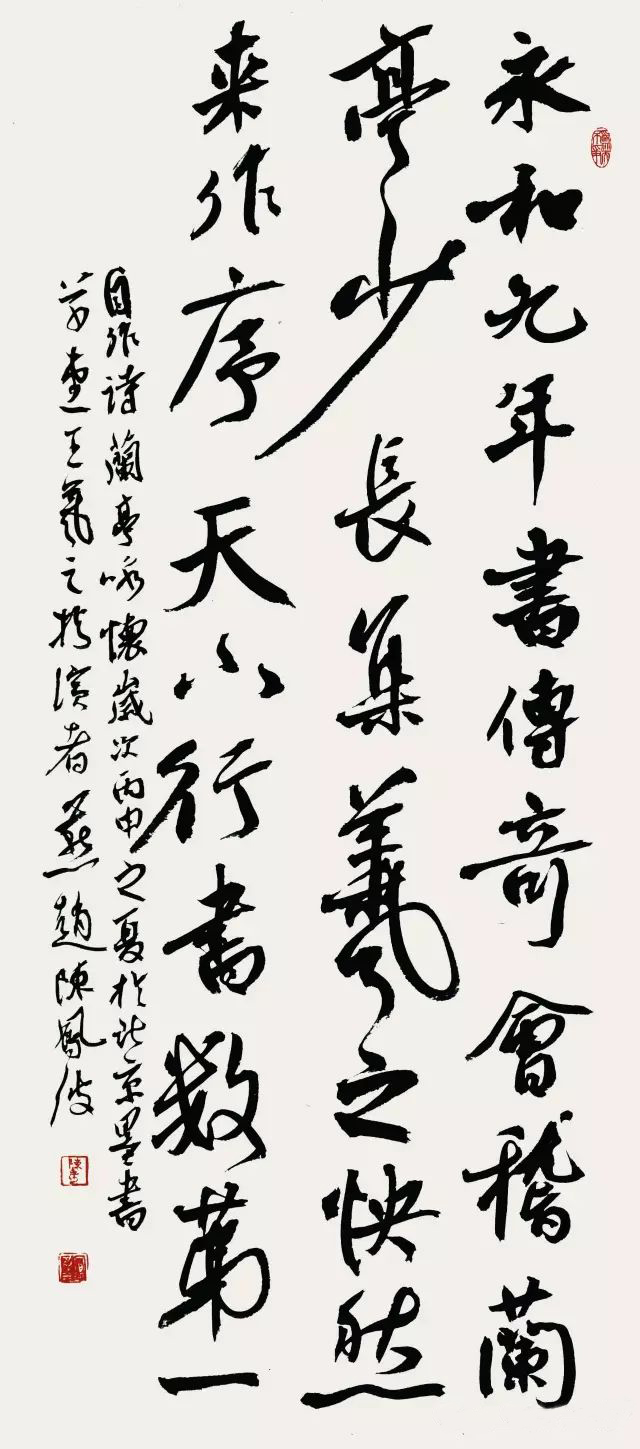 永和九年書傳奇會稽蘭
亭少長集羲之快然
来作序天下行書数第一
自作诗蘭亭咏懷歲次丙申之夏於北京墨書
王羲之扮演者燕趙陳鳳